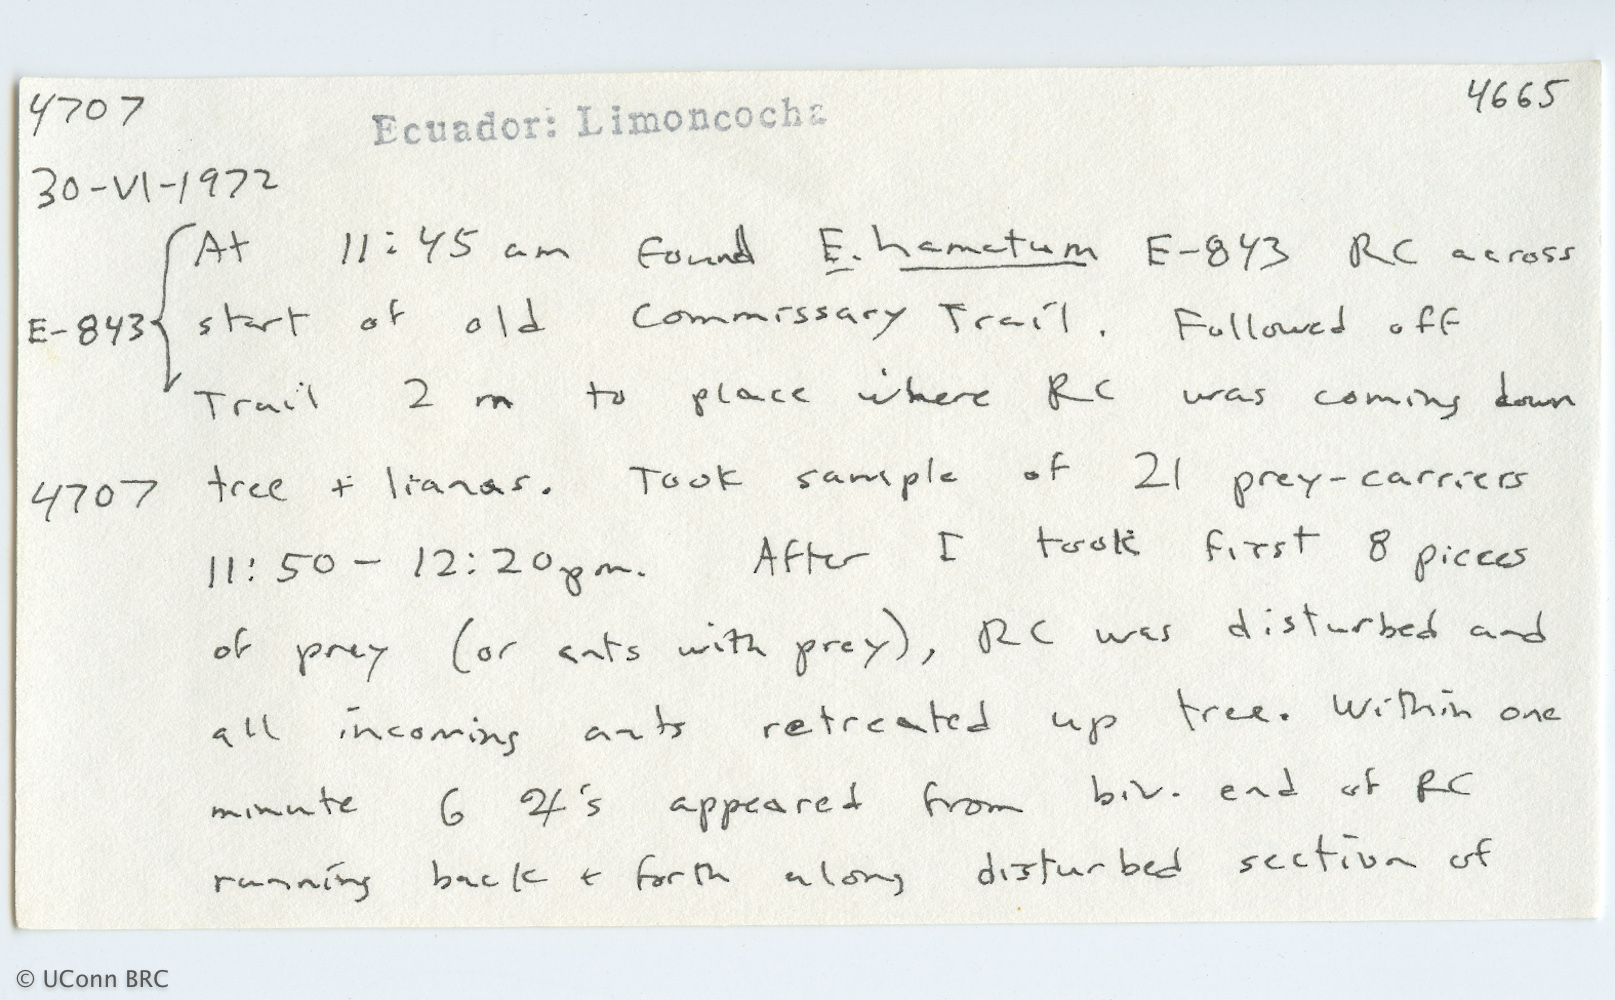 4707 Ecuador: Limoncocha 4665
30-VI-1972
At 11:45 am found E. hamatum E-843 RC across
E-843 start of old Commissary Trail. Followed off
Trail 2 m to place where RC was coming down
4707 tree + lianas. Took sample of 21 prey-carriers
11:50 - 12:20 pm. After I took first 8 pieces
of prey (or ants with prey), RC was disturbed and
all incoming ants retreated up tree. Within one
minute 6 ♃'s appeared from biv. end of RC
running back + forth along disturbed section of
© UConn BRC